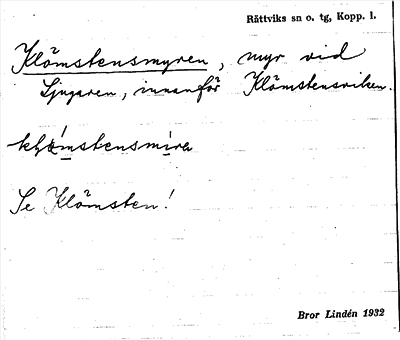 Rättviks sn o. tg, Kopp. l.
Klömstensmyren, myr vid
Ljugaren, innanför Klömstensviken.
Se Klömsten!
Bror Lindén 1932